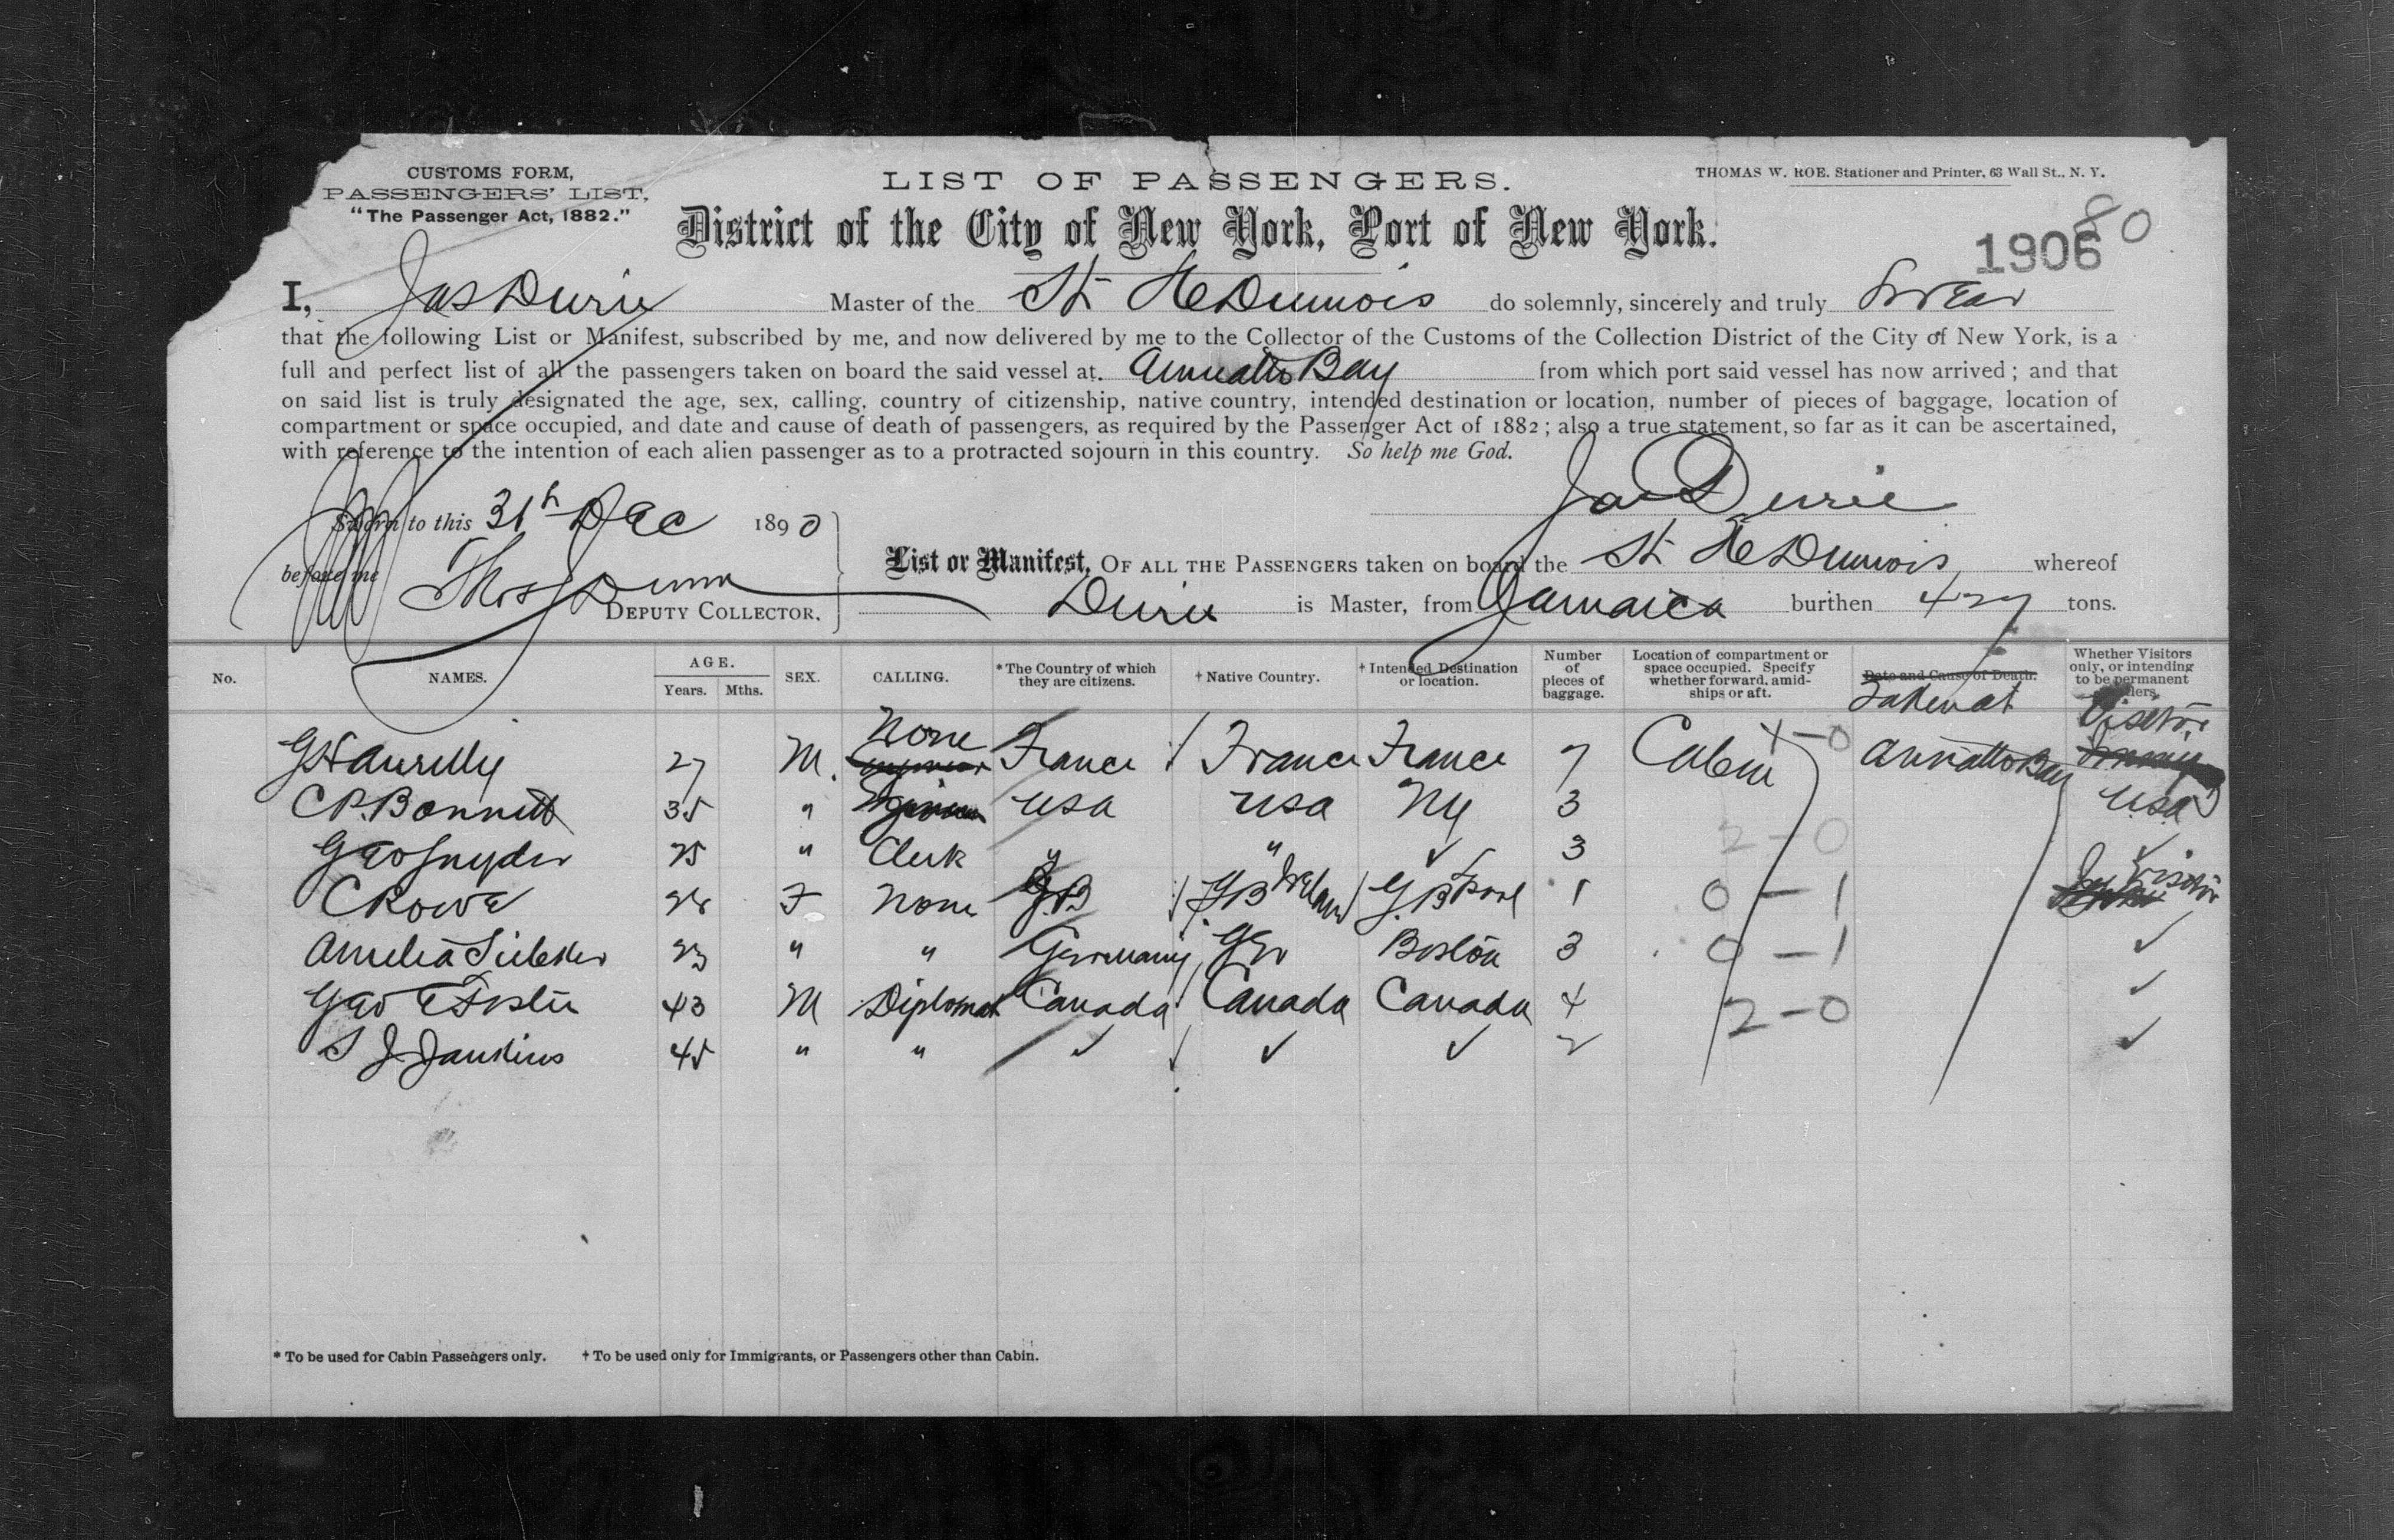 CUSTOMS FORM,
PASSENGERS' LIST,
"The Passenger Act, 1882."
LIST OF PASSENGERS.
THOMAS W. ROE. Stationer and Printer, 63 Wall St., N. Y.
District of the City of New York, Port of New York.
80
1906
I, Jas Durie Master of the St. H Dumois do solemnly, sincerely and truly Swear
that the following List or Manifest, subscribed by me, and now delivered by me to the Collector of the Customs of the Collection District of the City of New York, is a
full and perfect list of all the passengers taken on board the said vessel at Annatto Bay from which port said vessel has now arrived; and that
on said list is truly designated the age, sex, calling, country of citizenship, native country, intended destination or location, number of pieces of baggage, location of
compartment or space occupied, and date and cause of death of passengers, as required by the Passenger Act of 1882; also a true statement, so far as it can be ascertained,
with reference to the intention of each alien passenger as to a protracted sojourn in this country. So help me God.
Jas Durie
Sworn to this 31st Dec 1890
before me Thos Dunn
DEPUTY COLLECTOR.
List or Manifest, OF ALL THE PASSENGERS taken on board the St. H Dumois, whereof
Durie is Master, from Jamaica burthen 427 tons.
No. NAMES. AGE. Years. Mths. SEX. CALLING. *The Country of which they are citizens. †Native Country. †Intended Destination or location. Number of pieces of baggage. Location of compartment or space occupied. Specify whether forward, amidships or aft. Date and Cause of Death. Taken at Whether Visitors only, or intending to be permanent
G H 27 M. None France France France 7 Cabin 4-0 Annatto Bay Visitor
C P. Bonnett 35 " USA USA NY 3 USA
Geo Snyder 25 " Clerk " " ✓ 3 2-0 ✓
C Rowe 28 F None G.B G B Ireland G.B 1 0-1 Visitor
Amelia 23 " " Germany Ger Boston 3 0-1 ✓
Geo E Foster 43 M Diplomat Canada Canada Canada 4 2-0 ✓
S J Jankins 45 " " ✓ ✓ ✓ 2 ✓
* To be used for Cabin Passengers only. † To be used only for Immigrants, or Passengers other than Cabin.